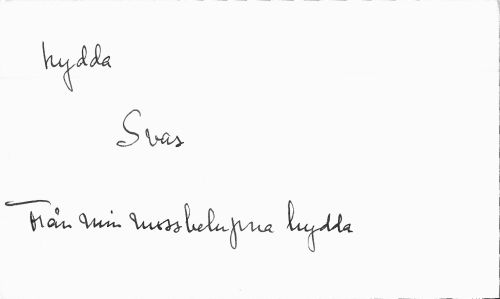 hydda
Svas
Från min mossbelupna hydda